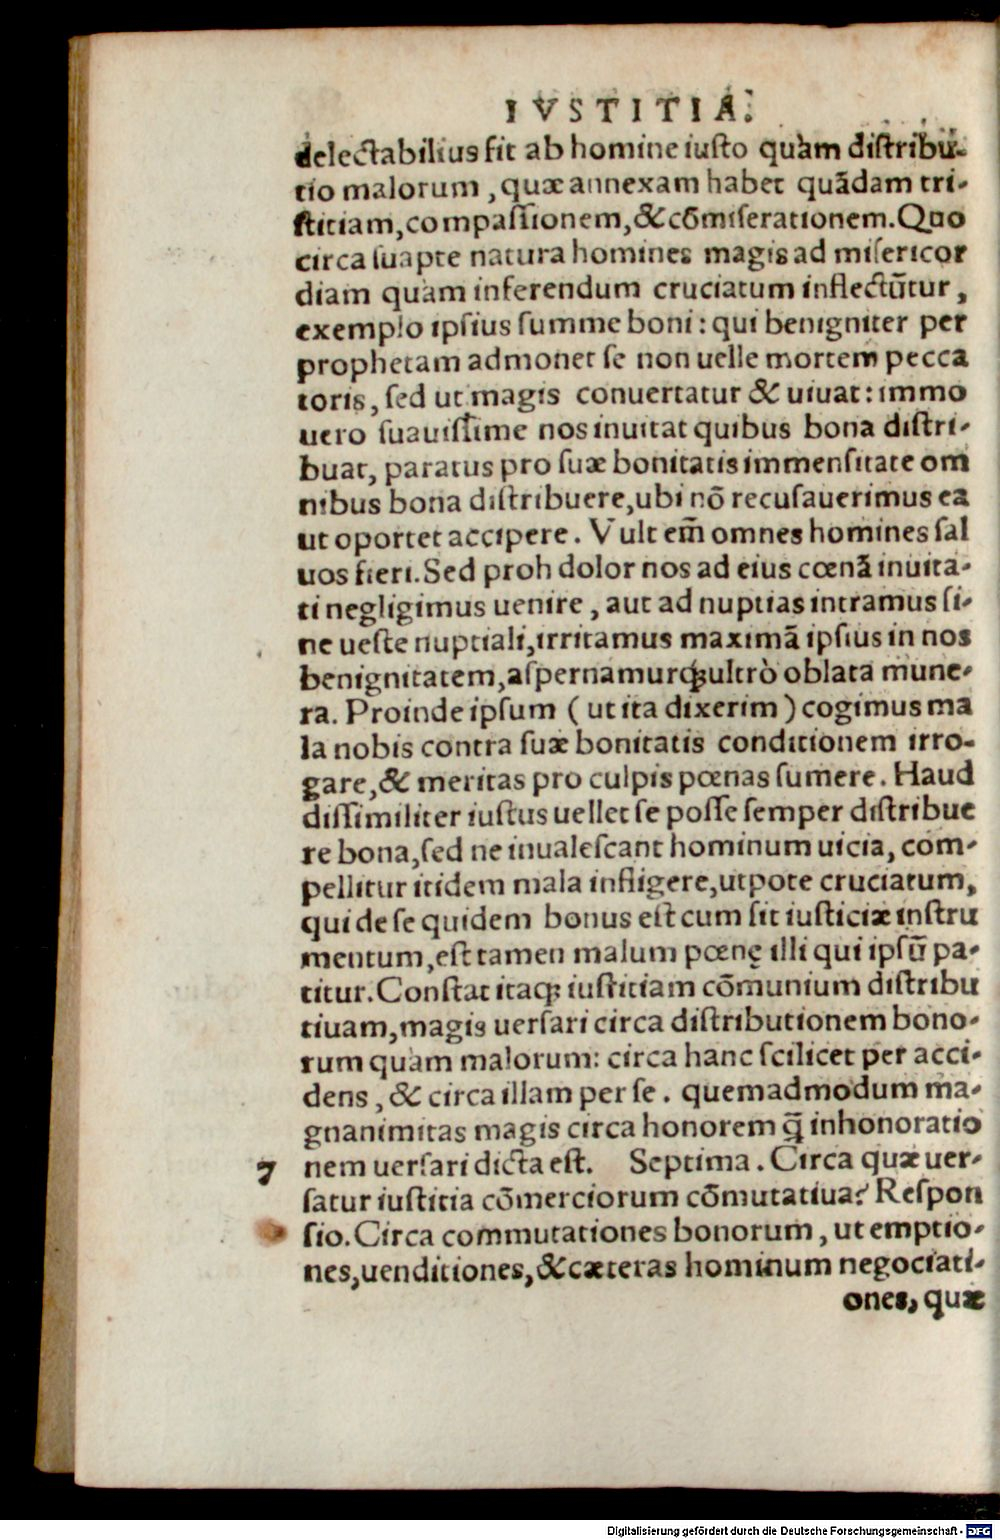 IVSTITIA.
delectabilius fit ab homine iusto quàm distribu-
tio malorum, quæ annexam habet quãdam tri-
stitiam, compaſſionem, & cõmiſerationem. Quo
circa ſuapte natura homines magis ad miſericor
diam quàm inferendum cruciatum inflectũtur,
exemplo ipſius ſumme boni: qui benigniter per
prophetam admonet ſe non uelle mortem pecca
toris, ſed ut magis conuertatur & uiuat: immo
uero ſuauiſſime nos inuitat quibus bona diſtri-
buat, paratus pro ſuæ bonitatis immenſitate om
nibus bona diſtribuere, ubi nõ recuſauerimus ea
ut oportet accipere. Vult em̃ omnes homines ſal
uos fieri. Sed proh dolor nos ad eius cœnã inuita-
ti negligimus uenire, aut ad nuptias intramus ſi-
ne ueſte nuptiali, irritamus maximã ipſius in nos
benignitatem, aſpernamurq́ꝫ ultrò oblata mune-
ra. Proinde ipſum (ut ita dixerim) cogimus ma
la nobis contra ſuæ bonitatis conditionem irro-
gare, & meritas pro culpis pœnas ſumere. Haud
diſſimiliter iuſtus uellet ſe poſſe ſemper diſtribue
re bona, ſed ne inualeſcant hominum uicia, com-
pellitur itidem mala infligere, utpote cruciatum,
qui de ſe quidem bonus eſt cum ſit iuſticiæ inſtru
mentum, eſt tamen malum pœnę illi qui ipſũ pa-
titur. Conſtat itaqꝫ iuſtitiam cõmunium diſtribu
tiuam, magis uerſari circa diſtributionem bono-
rum quàm malorum: circa hanc ſcilicet per acci-
dens, & circa illam per ſe. quemadmodum ma-
gnanimitas magis circa honorem q̃ inhonoratio
7 nem uerſari dicta eſt. Septima. Circa quæ uer-
ſatur iuſtitia cõmerciorum cõmutatiua? Reſpon
ſio. Circa commutationes bonorum, ut emptio-
nes, uenditiones, & cæteras hominum negociati-
ones, quæ
Digitalisierung gefördert durch die Deutsche Forschungsgemeinschaft - DFG